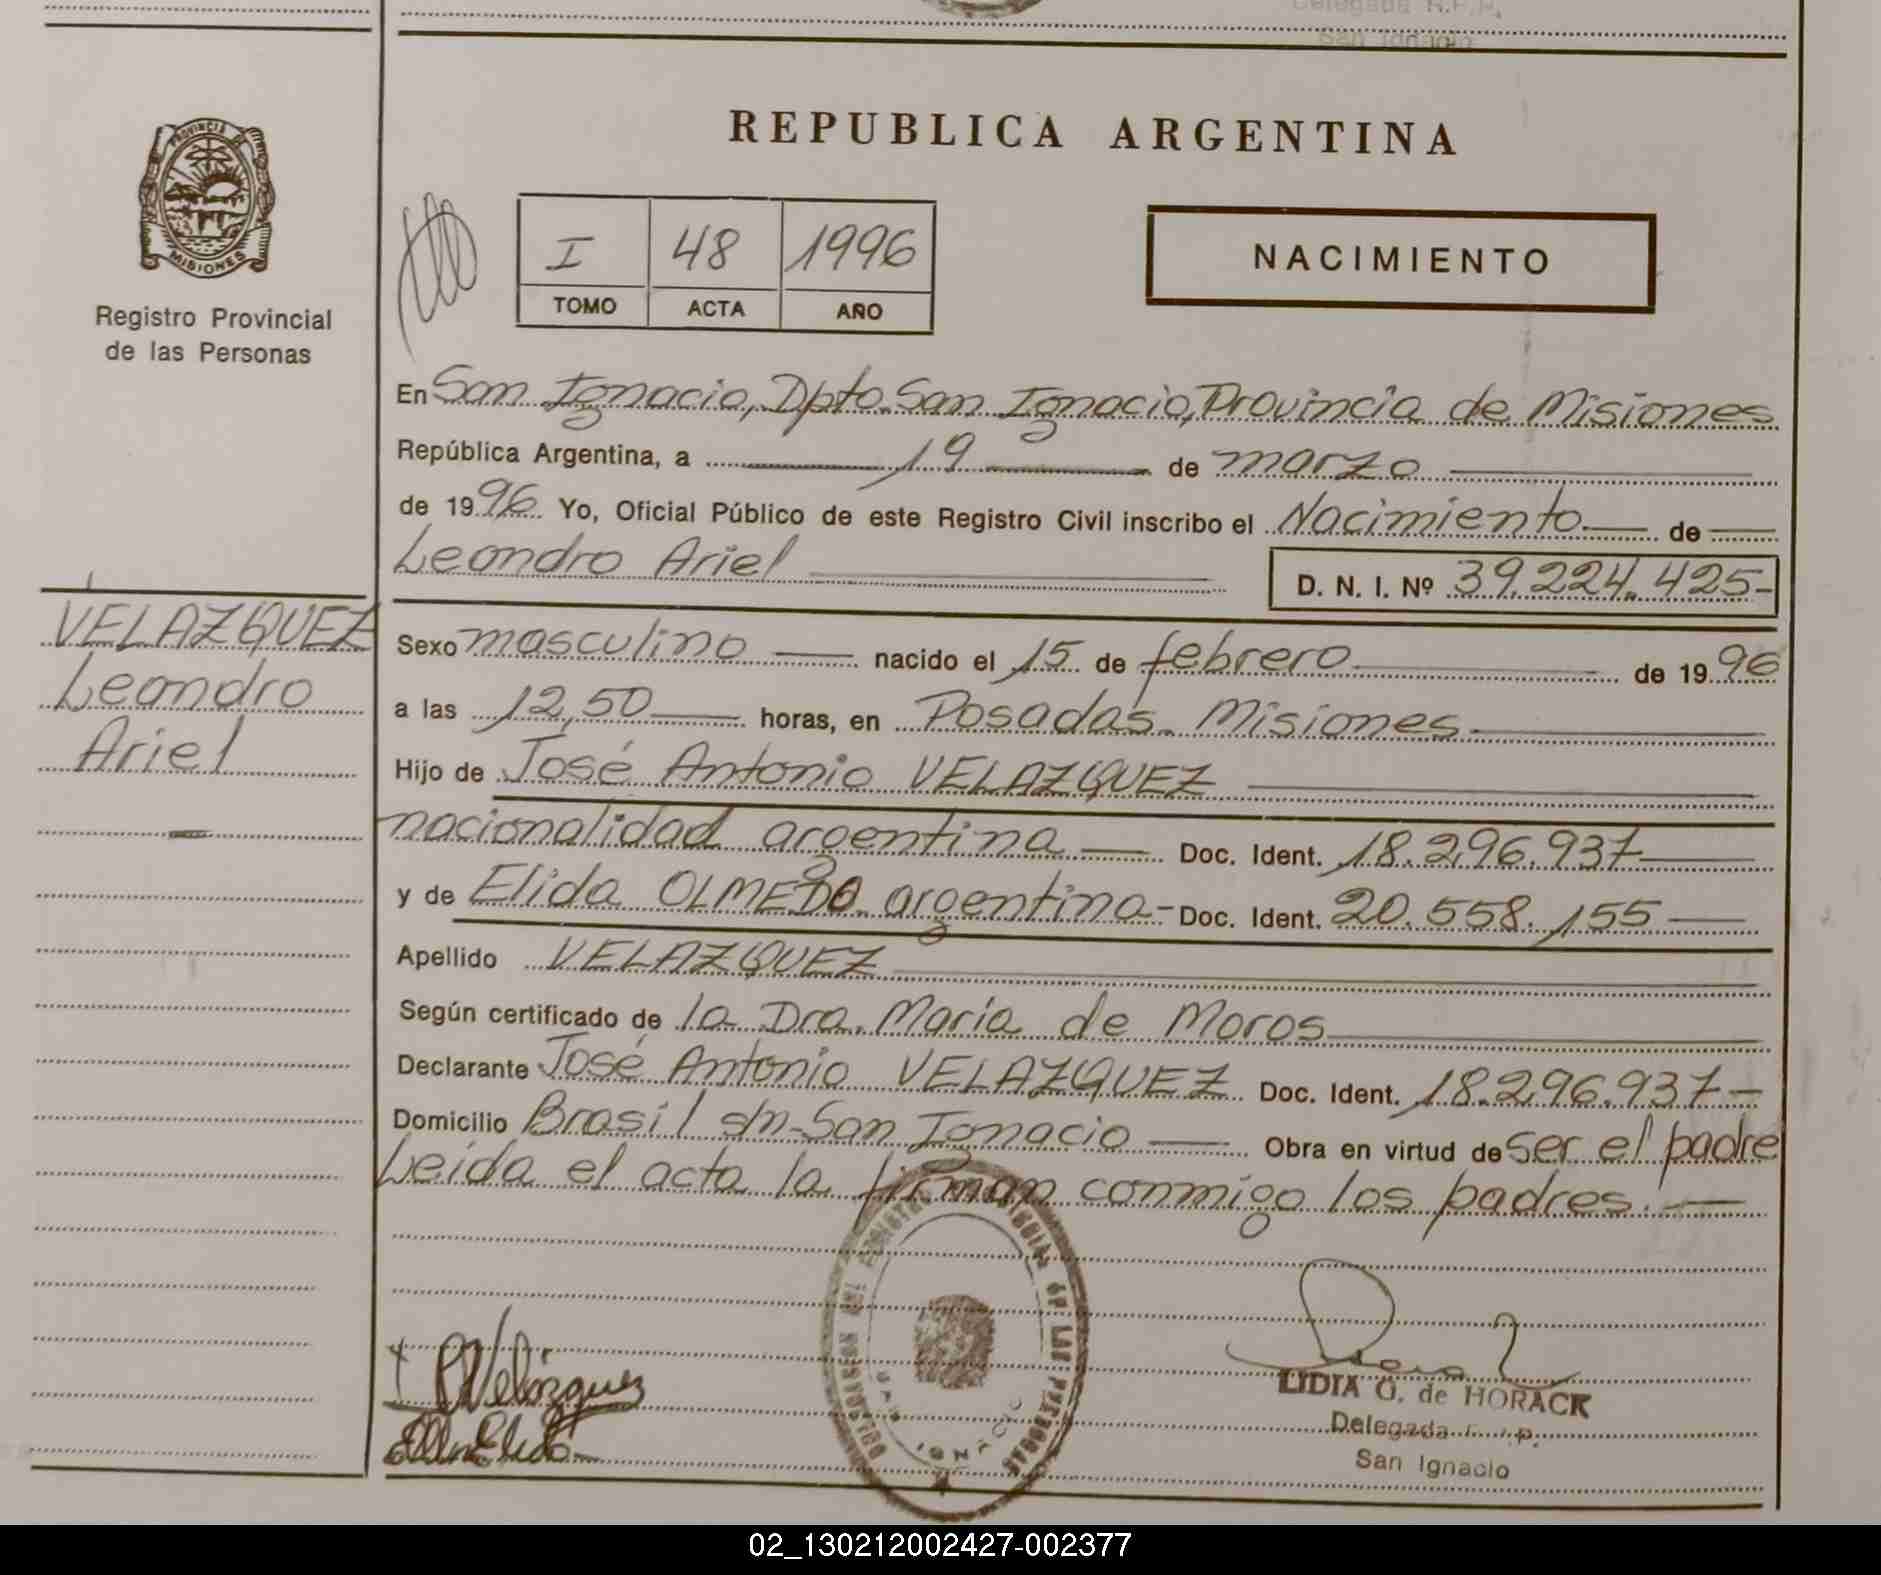 Delegada R.P.P.
San Ignacio
PROVINCIA DE
MISIONES
Registro Provincial
de las Personas
VELAZQUEZ
Leandro
Ariel
REPUBLICA ARGENTINA
I 48 1996
TOMO ACTA AÑO
NACIMIENTO
En San Ignacio, Dpto. San Ignacio, Provincia de Misiones
República Argentina, a 19 de marzo
de 1996 Yo, Oficial Público de este Registro Civil inscribo el Nacimiento de
Leandro Ariel D. N. I. Nº 39.224.425-
Sexo masculino nacido el 15 de febrero de 1996
a las 12,50 horas, en Posadas. Misiones
Hijo de José Antonio VELAZQUEZ
nacionalidad argentina Doc. Ident. 18.296.937
y de Elida OLMEDO argentina- Doc. Ident. 20.558.155
Apellido VELAZQUEZ
Según certificado de la Dra. María de Moros
Declarante José Antonio VELAZQUEZ Doc. Ident. 18.296.937-
Domicilio Brasil s/n-San Ignacio Obra en virtud de ser el padre
Leída el acta la firman conmigo los padres.-
LAS PERSONAS
SAN IGNACIO
Velázquez
Elida
LIDIA O. de HORACK
Delegada P.
San Ignacio
02_130212002427-002377